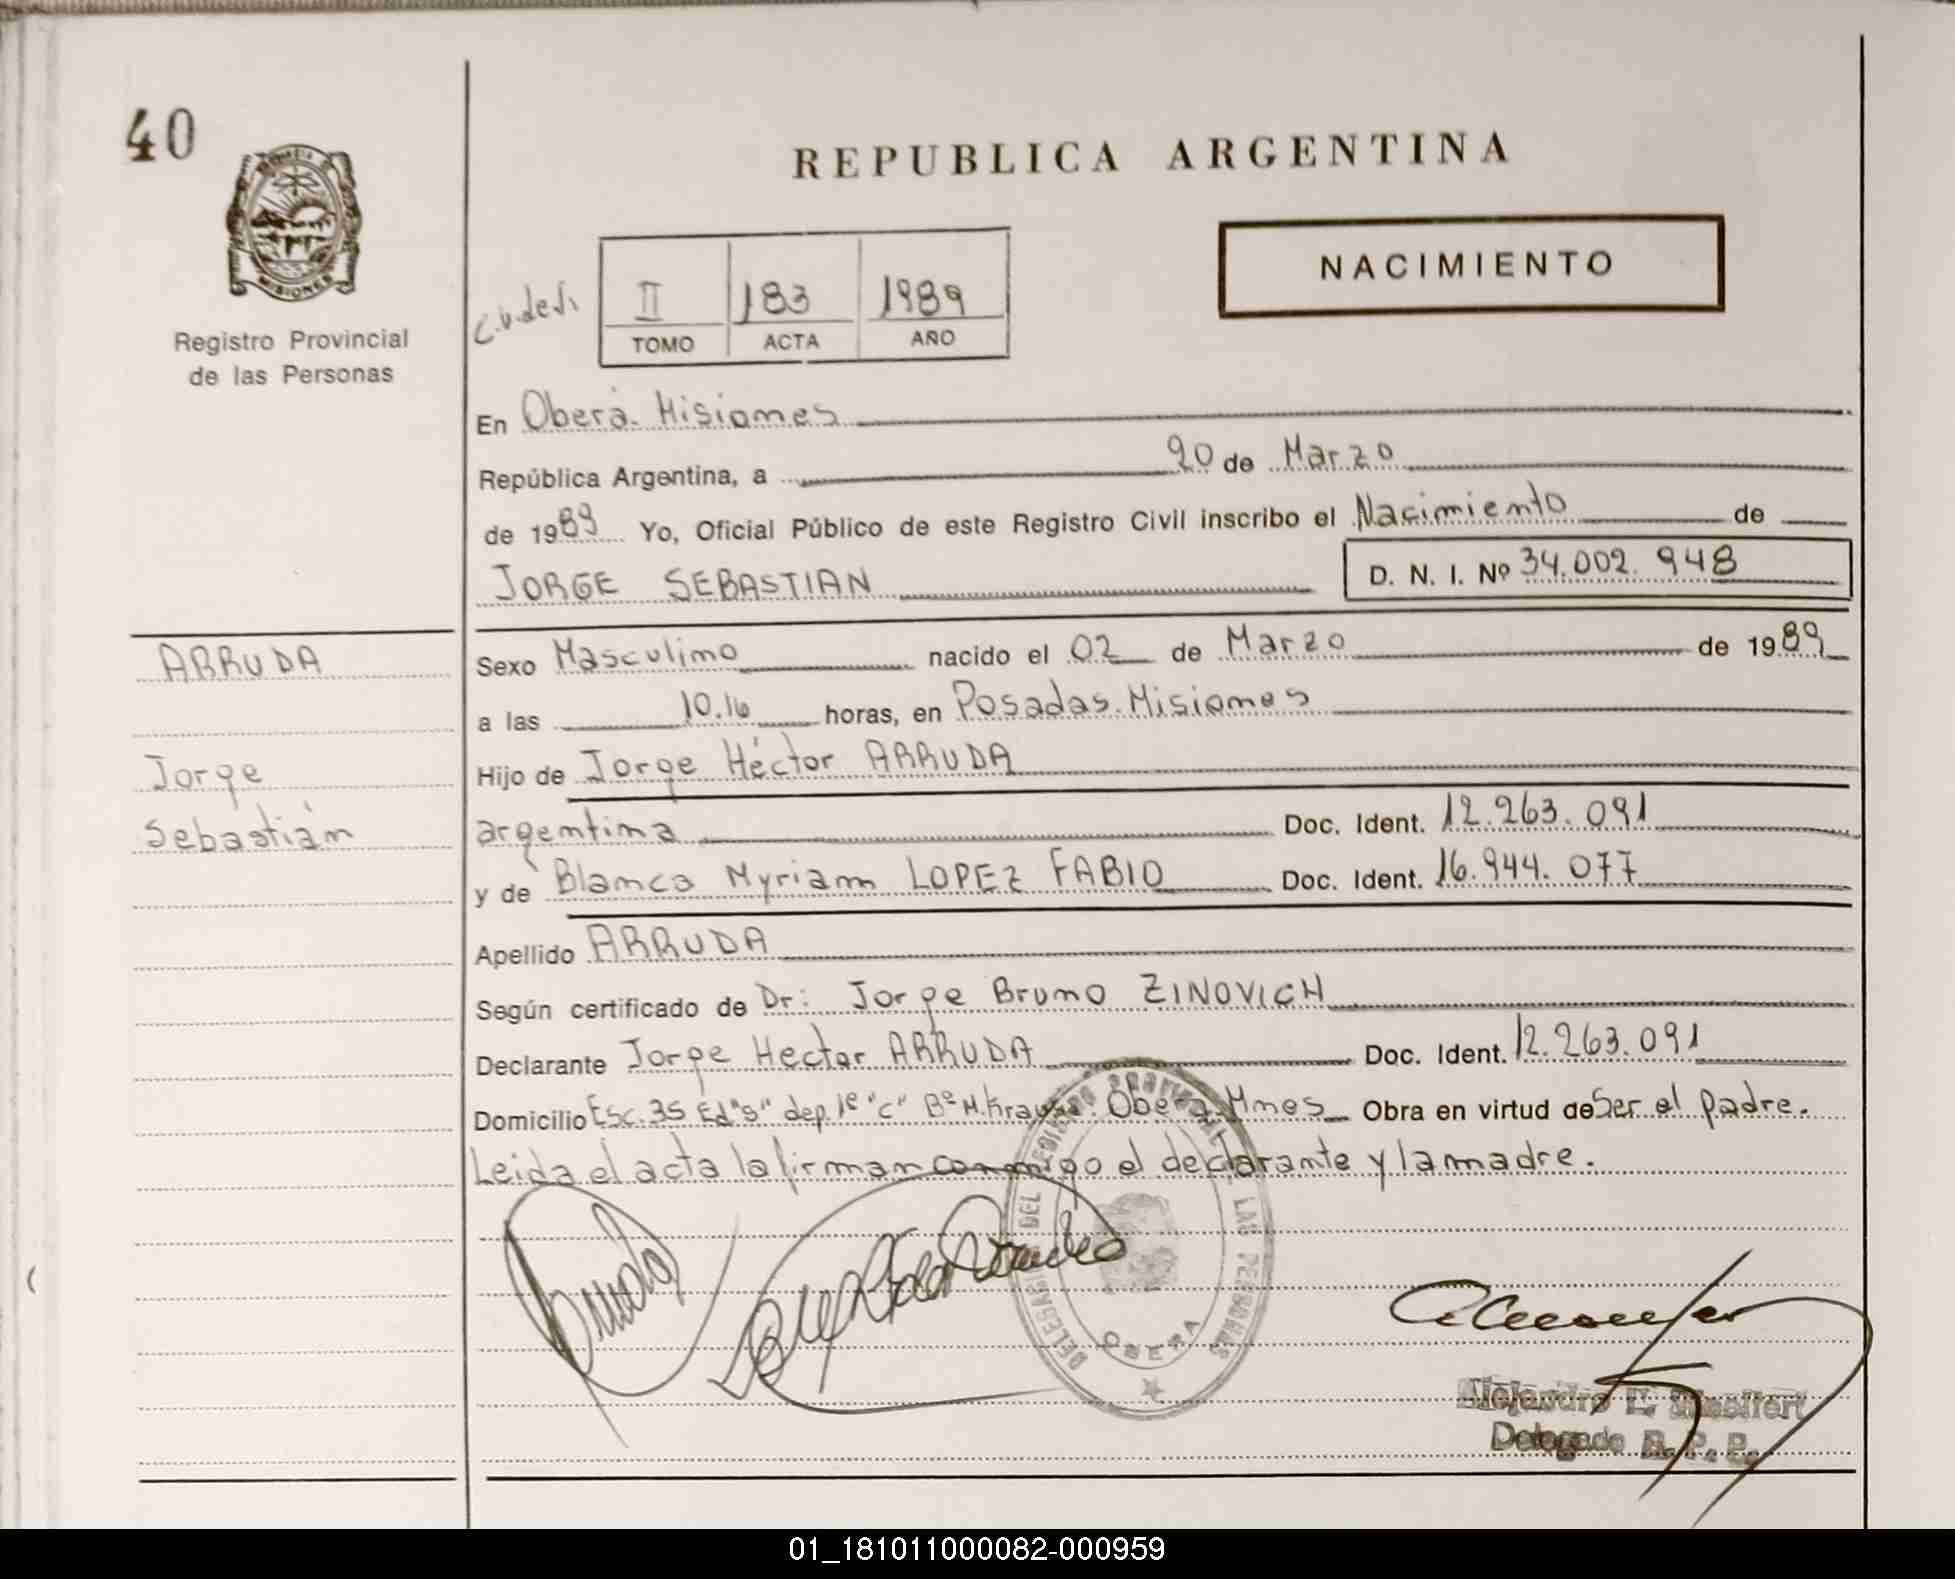 40
REPUBLICA ARGENTINA
NACIMIENTO
MISIONES
Registro Provincial
de las Personas
II 183 1989
TOMO ACTA AÑO
En Oberá. Misiones
República Argentina, a 20 de Marzo
de 1989 Yo, Oficial Público de este Registro Civil inscribo el Nacimiento de
JORGE SEBASTIAN
D. N. I. Nº 34.002.948
ARRUDA
Jorge
Sebastián
Sexo Masculino nacido el 02 de Marzo de 1989
a las 10.16 horas, en Posadas. Misiones
Hijo de Jorge Héctor ARRUDA
argentina Doc. Ident. 12.263.091
y de Blanca Myriam LOPEZ FABIO Doc. Ident. 16.944.077
Apellido ARRUDA
Según certificado de Dr: Jorge Bruno ZINOVICH
Declarante Jorge Hector ARRUDA Doc. Ident. 12.263.091
Domicilio Esc. 35 Ed "9" dep. 1º "c" Bº M. Oberá. Mnes Obra en virtud de Ser el padre.
Leida el acta la firman conmigo el declarante y la madre.
DELEGACION DEL REGISTRO PROVINCIAL DE LAS PERSONAS
OBERA
Alejandro E.
Delegado R. P. P.
01_181011000082-000959